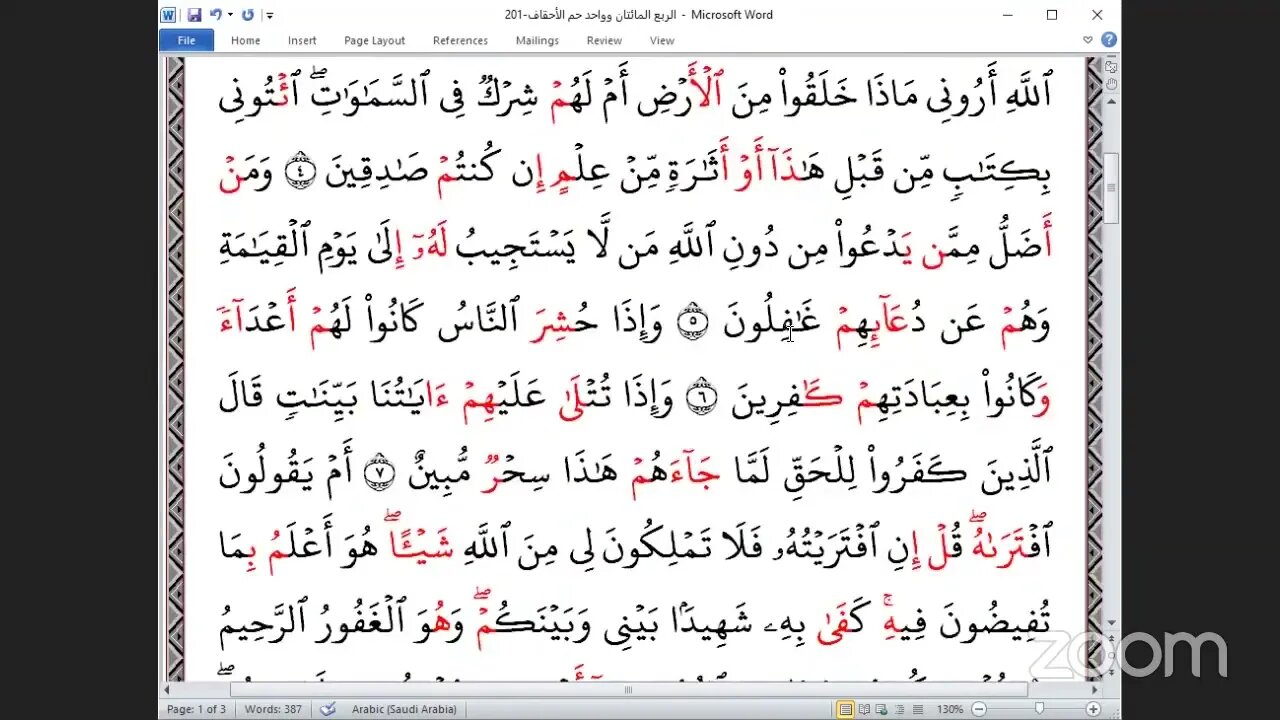 الربع المائتان وواحد حم الأحقاف-201 - Microsoft Word
File Home Insert Page Layout References Mailings Review View
ٱللَّهِ أَرُونِى مَاذَا خَلَقُوا۟ مِنَ ٱلْأَرْضِ أَمْ لَهُمْ شِرْكٌ فِى ٱلسَّمَـٰوَٰتِ ۖ ٱئْتُونِى
بِكِتَـٰبٍ مِّن قَبْلِ هَـٰذَآ أَوْ أَثَـٰرَةٍ مِّنْ عِلْمٍ إِن كُنتُمْ صَـٰدِقِينَ ٤ وَمَنْ
أَضَلُّ مِمَّن يَدْعُوا۟ مِن دُونِ ٱللَّهِ مَن لَّا يَسْتَجِيبُ لَهُۥٓ إِلَىٰ يَوْمِ ٱلْقِيَـٰمَةِ
وَهُمْ عَن دُعَآئِهِمْ غَـٰفِلُونَ ٥ وَإِذَا حُشِرَ ٱلنَّاسُ كَانُوا۟ لَهُمْ أَعْدَآءً
وَكَانُوا۟ بِعِبَادَتِهِمْ كَـٰفِرِينَ ٦ وَإِذَا تُتْلَىٰ عَلَيْهِمْ ءَايَـٰتُنَا بَيِّنَـٰتٍ قَالَ
ٱلَّذِينَ كَفَرُوا۟ لِلْحَقِّ لَمَّا جَآءَهُمْ هَـٰذَا سِحْرٌ مُّبِينٌ ٧ أَمْ يَقُولُونَ
ٱفْتَرَىٰهُ ۖ قُلْ إِنِ ٱفْتَرَيْتُهُۥ فَلَا تَمْلِكُونَ لِى مِنَ ٱللَّهِ شَيْـًٔا ۖ هُوَ أَعْلَمُ بِمَا
تُفِيضُونَ فِيهِ ۚ كَفَىٰ بِهِۦ شَهِيدًۢا بَيْنِى وَبَيْنَكُمْ ۖ وَهُوَ ٱلْغَفُورُ ٱلرَّحِيمُ
zoom
Page: 1 of 3 Words: 387 Arabic (Saudi Arabia) 130%